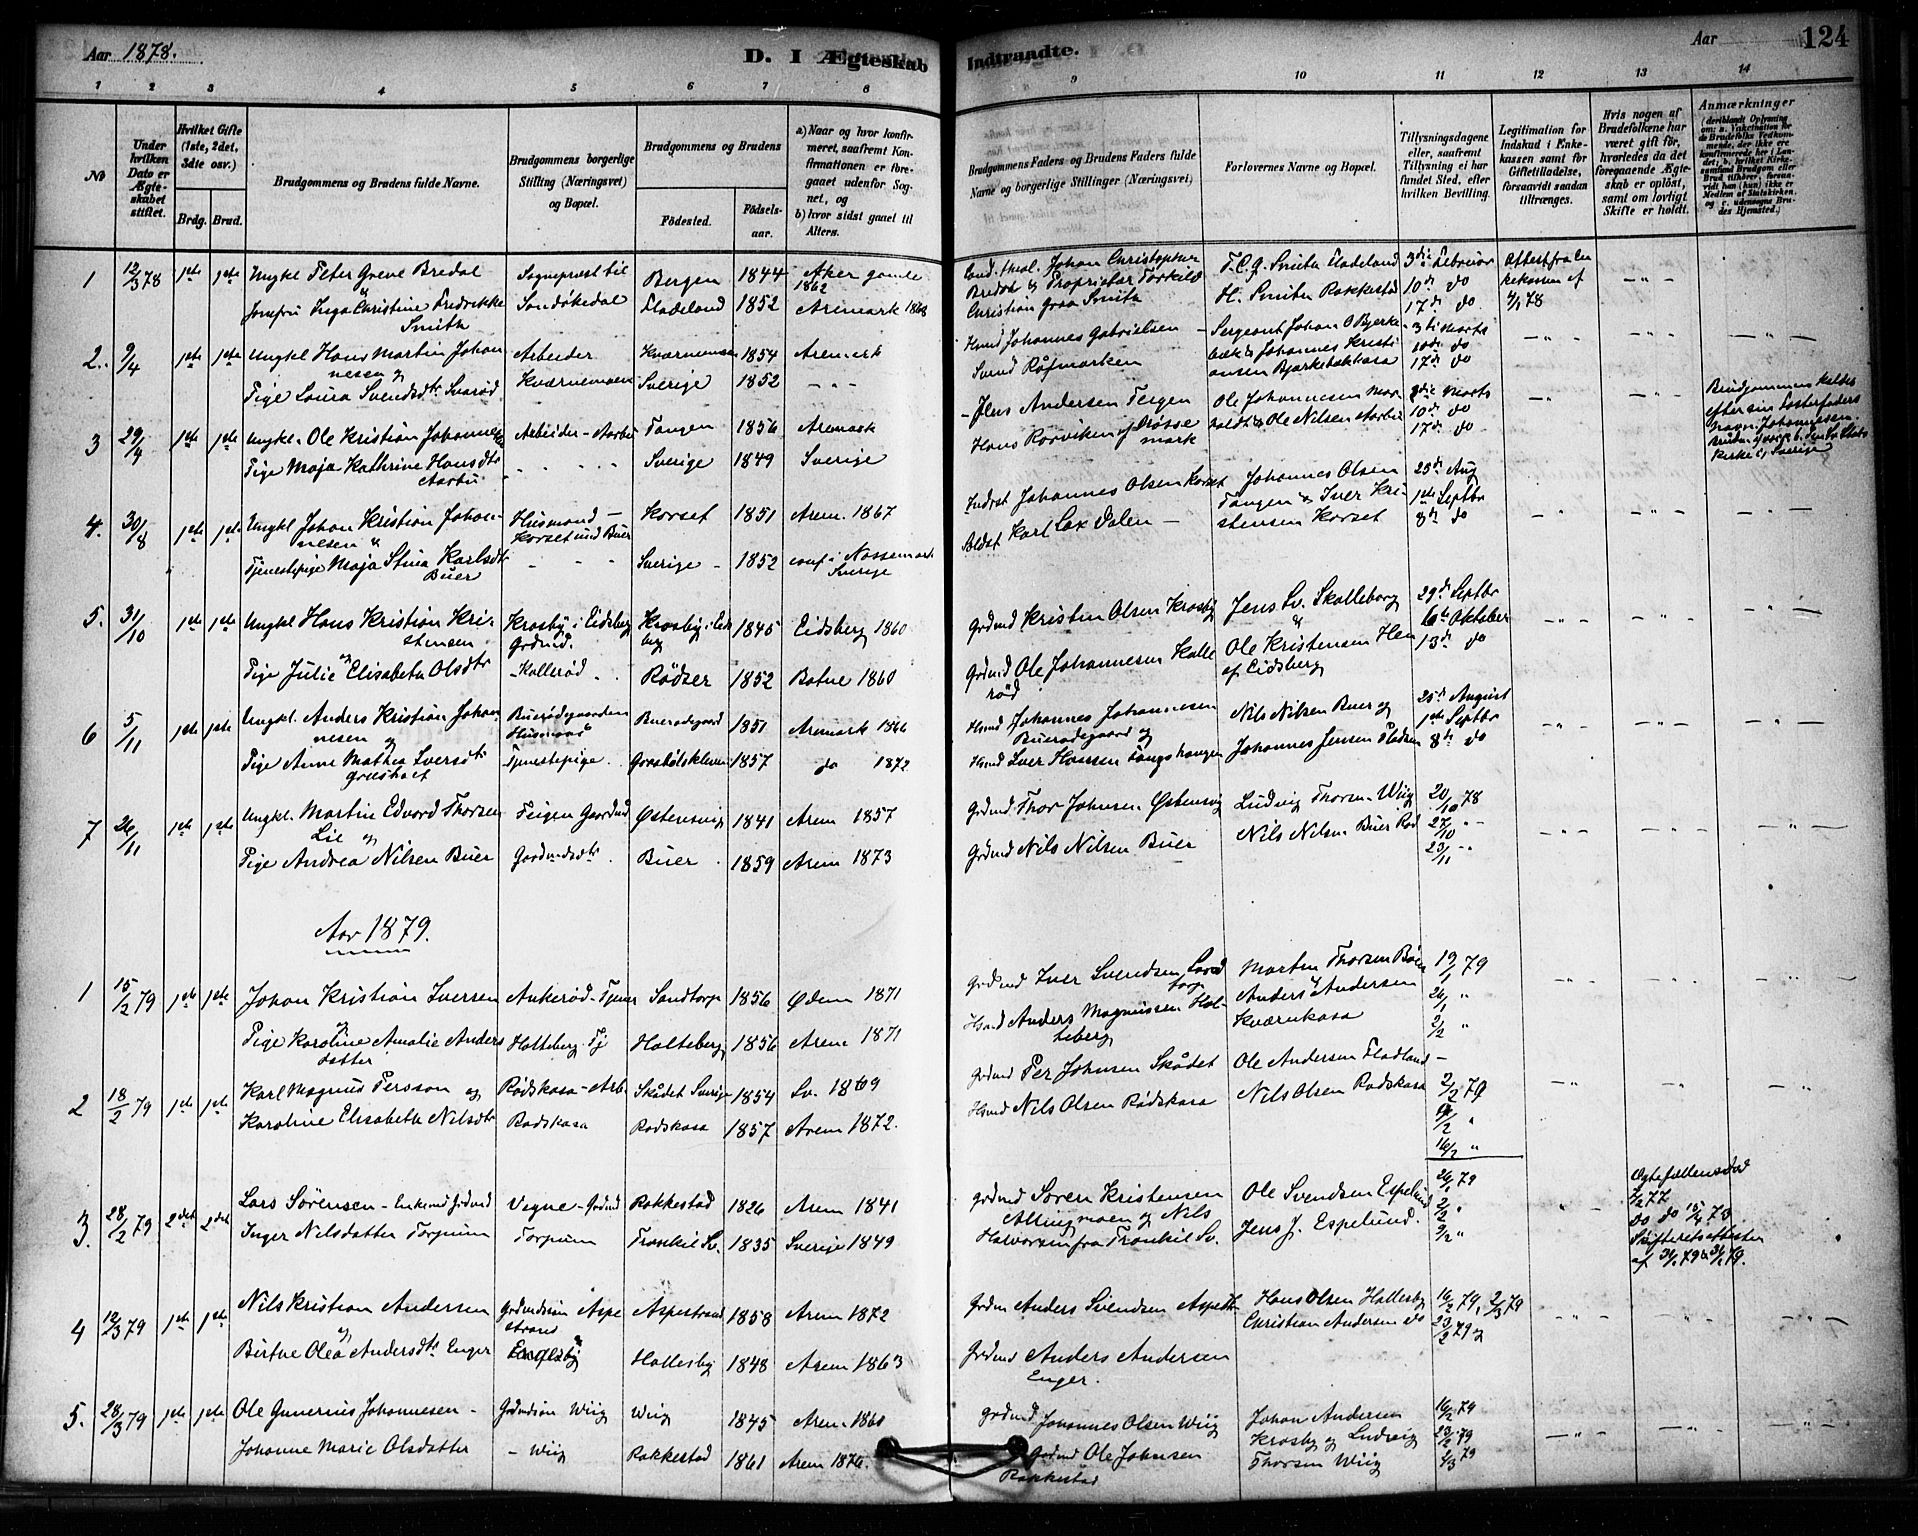 Aar 1878.
D. I Ægteskab Indtraadte.
Aar
124
1 2 3 4 5 6 7 8 9 10 11 12 13 14
No
Under hvilken Dato er Ægteskabet stiftet.
Hvilket Gifte (1ste, 2det, 3dte osv.)
Brdg. Brud.
Brudgommens og Brudens fulde Navne.
Brudgommens borgerlige Stilling (Næringsvei) og Bopæl.
Brudgommens og Brudens
Födested.
Födselsaar.
a) Naar og hvor konfirmeret, saafremt Konfirmationen er foregaaet udenfor Sognet, og
b) hvor sidst gaaet til Alters.
Brudgommens Faders og Brudens Faders fulde Navne og borgerlige Stillinger (Næringsvei)
Forlovernes Navne og Bopæl.
Tillysningsdagene eller, saafremt Tillysning ei har fundet Sted, efter hvilken Bevilling.
Legitimation for Indskud i Enkekassen samt for Giftetilladelse, forsaavidt saadan tiltrænges.
Hvis nogen af Brudefolkene har været gift før, hvorledes da det foregaaende Ægteskab er oplöst, samt om lovligt Skifte er holdt.
Anmærkninger
1 12/3 78 1ste 1ste Ungkl Peter Greve Bredal & Sogneprest til Bergen 1844 Aker gamle 1862
Jomfru Inga Christine Fredrikke Smith Sandökedal Fladeland 1852 Aremark 1868
Cand. theol. Johan Christopher Bredal & Proprietær Torkild Christian Graa Smith
T.C.G. Smith Fladeland
H. Smith Rakkestad
3die Februar
10de do
17de do
Attest fra Enkekassen af 4/1 78
2. 9/4 1ste 1ste Ungkl Hans Martin Johannesen og Arbeider Kværnemoen 1854 Aremark
Pige Laura Svendsdtr Svarød Kværnemoen Sverige 1852 - " -
Husmd Johannes Gabrielsen
Svend Röfmarken
Sergeant Johan O Bjerkebæk & Johannes Kristiansen Bjerkebækkasa
3die Marts
10de do
17de do
3 29/4 1ste 1ste Ungkl. Ole Kristian Johannesen Arbeider - Aarbu Tangen 1856 Aremark
Pige Maja Kathrine Hansdtr Aarbu Sverige 1849 Sverige
Jens Andersen Teigen
Hans Rorviken af Trøssemark
Ole Johannesen &amp; Ole Nilsen Aarbu
3die Marts
10de do
17de do
Brudgommen kaldes efter sin Fosterfaders Navn Johannesen.
4. 30/8 1ste 1ste Ungkl Johan Kristian Johannesen & Husmand Korset 1851 Arem. 1867
Tjenestepige Maja Stina Karlsdtr Buer Korset und Buer Sverige 1852 conf i Nossemark Sverige
Indrst Johannes Olsen Korset
Soldat Karl Lax Dalen
Johannes Olsen Tangen & Iver Kristensen Korset
25de Aug
1ste Septbr
8de do
5. 31/10 1ste 1ste Ungkl Hans Kristian Kristensen og Krosby i Eidsberg Grdmd. Krosby i Eidsberg 1845 Eidsberg 1860
Pige Julie Elisabeth Olsdtr Kallerød Rödser 1852 Botne 1860
Grdmd Kristen Olsen Krosby
Grdmd Ole Johannesen Kallerød
Jens Sv. Skolleborg &
Ole Kristensen Hen af Eidsberg
29de Septbr
6te Oktober
13de do
6 5/11 1ste 1ste Ungkl. Anders Kristian Johannesen og Buerødegaarden Husmand Buerødegaard 1851 Aremark 1866
Pige Anne Mathea Iversdtr Græsholt Tjenestepige. Græshölskleven 1857 do 1872
Husmd Johannes Johannesen Buerødegaard og
Husmd Iver Hansen Langshaugen
Nils Nilsen Buer og
Johannes Jensen Fladsen
25de August
1ste Septbr
8de do
7 26/11 1ste 1ste Ungkl. Martin Edvard Thorsen Lie og Teigen Gaardmd Østensvig 1841 Arem 1857
Pige Andrea Nilsen Buer Gaardmdsdtr. Buer 1859 Arem 1873
Grdmd Thor Johnsen Østensvig
Grdmd Nils Nilsen Buer
Ludvig Thorsen Wiig
Nils Nilsen Buer Rød
20/10 78
27/10 -
23/11 -
Aar 1879.
1 15/2 79 1ste 1ste Johan Kristian Iversen & Ankerød - Tjener Sandtorp 1856 Ødem 1871
Pige Karoline Amalie Andersdatter Holteberg Tj Holteberg 1856 Arem 1871
Grdmd Iver Svendsen Sandtorp
Husmd Anders Magnussen Holteberg
Martin Thorsen Böen
Anders Andersen Kværnkasa
19/1 79
26/1 "
2/2 "
2 18/2 79 1ste 1ste Karl Magnus Persson og Rödskasa - Arb. Skådet Sverige 1854 Sv. 1869
Karoline Elisabeth Nilsdtr Rødskasa Rødskasa 1857 Arem 1872.
Grdmd Per Johnsen Skådet
Husmd Nils Olsen Rödskasa
Ole Andersen Fladland
Nils Olsen Rødskasa
2/2 79
9/2 "
16/2 "
3. 28/2 79 2det 2det Lars Sörensen - Enkemd Grdmd Vegne - Grdmd Rakkestad 1826 Arem 1841
Inger Nilsdatter Torpum Torpum Trankil Sv. 1835 Sverige 1849
Grdmd Soren Kristensen Allingmoen og Nils Halvorsen fra Trankil Sv.
Ole Svendsen Espelund
Jens J. Espelund.
26/1 79
2/2 "
9/2 "
Ægtefællens död 2/2 77
do do 15/4 73
Skifterets attester af
4 12/3 79 1ste 1ste Nils Kristian Andersen og Grdmdssön Aspestrand & Aspestrand 1858 Arem 1872
Birthe Olea Andersdtr Enger Hallesby 1848 Arem 1863
Grdm Anders Svendsen Aspestr
Grdmd Anders Andersen Enger.
Hans Olsen Hallesby
Christian Andersen do
16/2 79, 2/3 79
23/2 79 &
5. 28/3 79 1ste 1ste Ole Gunerius Johannesen - Grdmdsön Wiig Wiig 1845 Arem 1860
Johanne Marie Olsdatter - Wiig Rakkestad 1861 Arem 1876.
Grdmd Johannes Olsen Wiig
Grdmd Ole Johnsen Rakkestad
Johan Andersen Krosby og Ludvig Thorsen Wiig
16/2 79
23/2 79
2/3 79